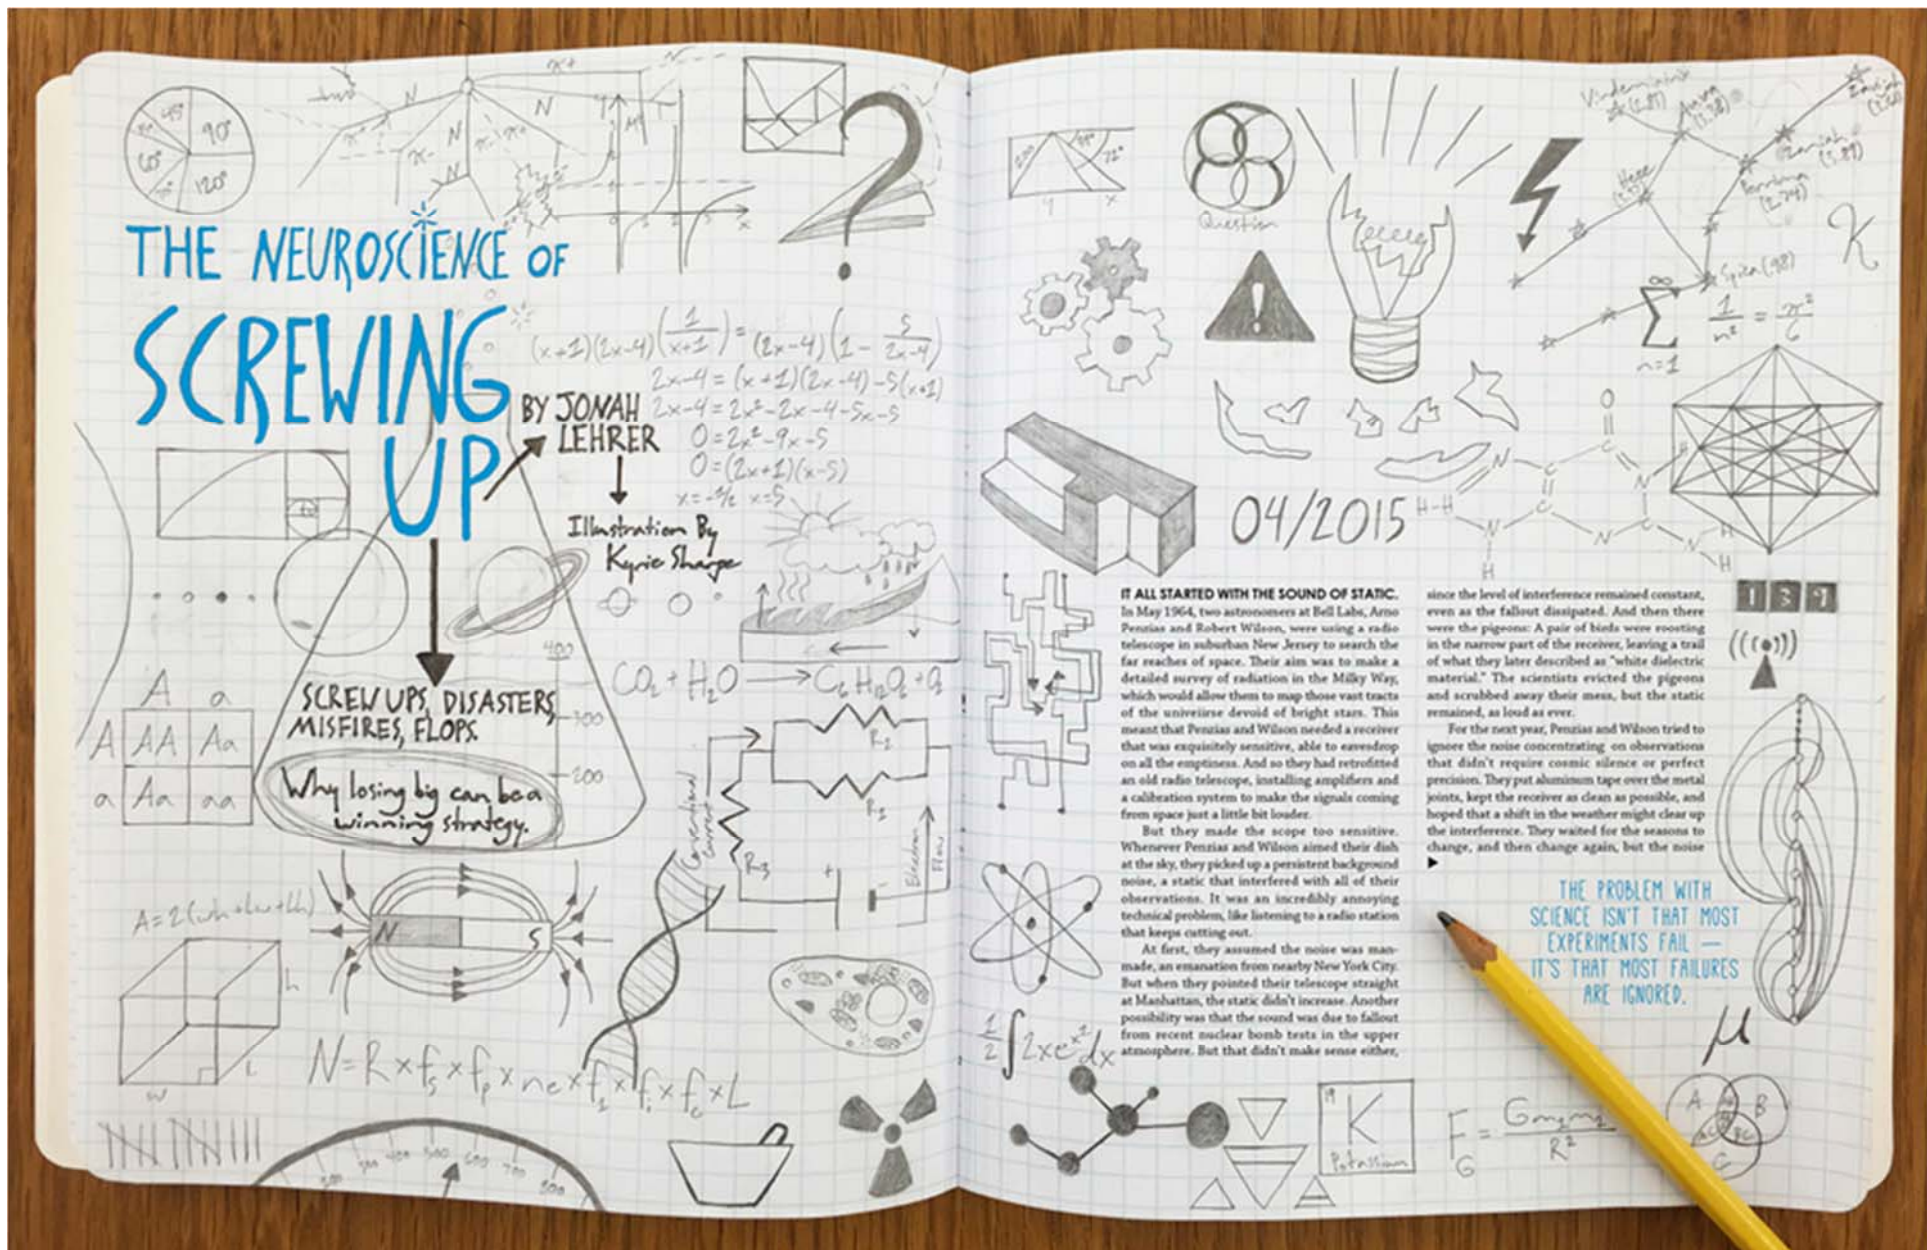 45°
90°
60°
120°
N
N
N
N
THE NEUROSCIENCE OF
SCREWING
UP
BY JONAH
LEHRER
Illustration By
Kyrie Sharpe
(x+1)(2x-4)(1/x+1) = (2x-4)(1 - 5/2x-4)
2x-4 = (x+1)(2x-4)-5(x+1)
2x-4 = 2x²-2x-4-5x-5
0=2x²-9x-5
0=(2x+1)(x-5)
x=-½ x=5
SCREW UPS, DISASTERS,
MISFIRES, FLOPS.
Why losing big can be a
winning strategy.
400
300
200
A a
A AA Aa
a Aa aa
CO₂ + H₂O → C₆H₁₂O₆ + O₂
Conventional
Current
R₃
Electron
Flow
N S
h
L
w
N=R×fₛ×fₚ×ne×f₂×fᵢ×f꜀×L
Question
y x
K
Spica (.98)
∞
Σ 1/n² = π²/6
n=1
04/2015
O
C
N
H-H
H
137
IT ALL STARTED WITH THE SOUND OF STATIC.
In May 1964, two astronomers at Bell Labs, Arno
Penzias and Robert Wilson, were using a radio
telescope in suburban New Jersey to search the
far reaches of space. Their aim was to make a
detailed survey of radiation in the Milky Way,
which would allow them to map those vast tracts
of the univeiirse devoid of bright stars. This
meant that Penzias and Wilson needed a receiver
that was exquisitely sensitive, able to eavesdrop
on all the emptiness. And so they had retrofitted
an old radio telescope, installing amplifiers and
a calibration system to make the signals coming
from space just a little bit louder.
But they made the scope too sensitive.
Whenever Penzias and Wilson aimed their dish
at the sky, they picked up a persistent background
noise, a static that interfered with all of their
observations. It was an incredibly annoying
technical problem, like listening to a radio station
that keeps cutting out.
At first, they assumed the noise was man-
made, an emanation from nearby New York City.
But when they pointed their telescope straight
at Manhattan, the static didn't increase. Another
possibility was that the sound was due to fallout
from recent nuclear bomb tests in the upper
atmosphere. But that didn't make sense either,
since the level of interference remained constant,
even as the fallout dissipated. And then there
were the pigeons: A pair of birds were roosting
in the narrow part of the receiver, leaving a trail
of what they later described as "white dielectric
material." The scientists evicted the pigeons
and scrubbed away their mess, but the static
remained, as loud as ever.
For the next year, Penzias and Wilson tried to
ignore the noise concentrating on observations
that didn't require cosmic silence or perfect
precision. They put aluminum tape over the metal
joints, kept the receiver as clean as possible, and
hoped that a shift in the weather might clear up
the interference. They waited for the seasons to
change, and then change again, but the noise
THE PROBLEM WITH
SCIENCE ISN'T THAT MOST
EXPERIMENTS FAIL —
IT'S THAT MOST FAILURES
ARE IGNORED.
½∫2xe^x²dx
μ
19
K
Potassium
F_G = Gm₁m₂/R²
A B
C